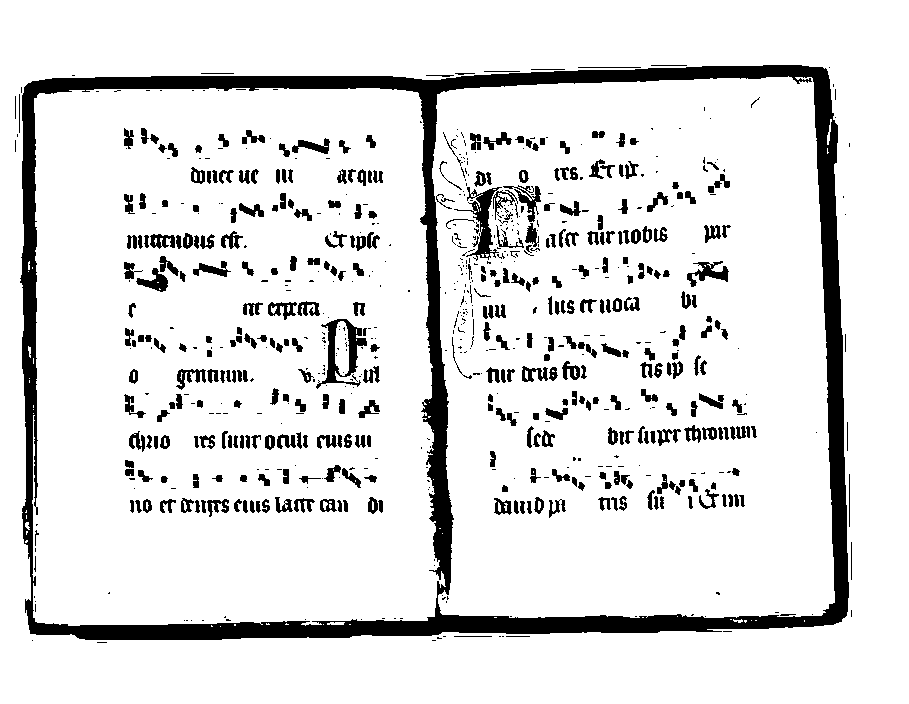 donec ue ni at qui
mittendus est. Et ipse
e rit expecta ti
o gentium. v. Pul
chrio res sunt oculi eius ui
no et dentes eius lacte can di
di o res. Et ip.
Nasce tur nobis par
uu lus et uoca bi
tur deus for tis ip se
sede bit super thronum
dauid pa tris su i & im